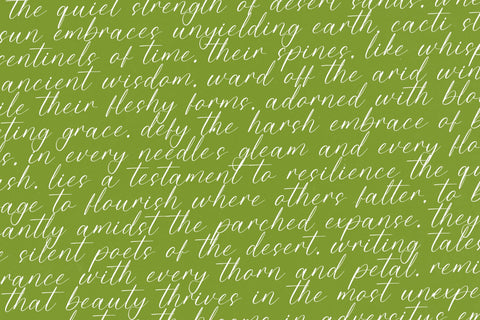 the quiet strength of desert sands. whe
sun embraces unyielding earth, cacti st
centinels of time. their spines, like whisp
ancient wisdom, ward off the arid win
ile their fleshy forms, adorned with blo
ting grace, defy the harsh embrace of
s. in every needle's gleam and every flo
sh, lies a testament to resilience the qu
age to flourish where others falter, to b
antly amidst the parched expanse. they
e silent poets of the desert, writing tales
rance with every thorn and petal, remi
that beauty thrives in the most unexpe
th blooms in adversitys em